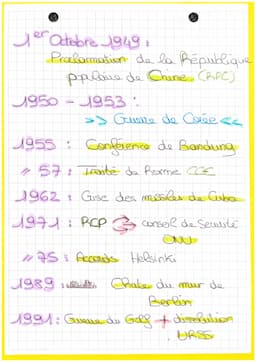 1er Octobre 1949 :
Proclamation de la République
populaire de Chine (RPC)
1950 - 1953 :
>> Guerre de Corée <<
1955 : Conférence de Bandung
// 57 : Traité de Rome CCE
1962 : Crise des missiles de Cuba
1971 : RCP conseil de Sécurité
ONU
// 75 : Accords Helsinki
1989 : Chute du mur de
Berlin
1991 : Guerre du Golf + dissolution
URSS